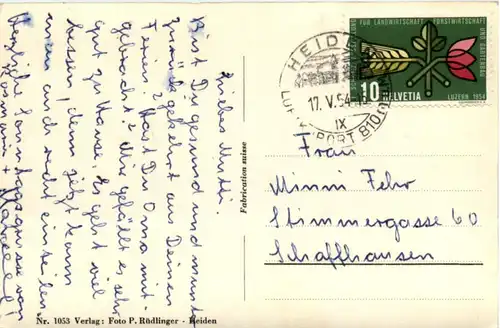 Liebes Mutti.
Bist Du gesund und munter
zurückgekehrt aus Deinen
Ferien? Hast Du Oma mit-
gebracht? Mir gefällt es sehr
gut zu Hause. Es geht viel
besser, denn jetzt kann
man auch recht einteilen
Herzliche Sonntagsgrüsse von
Fabrication suisse
Nr. 1053 Verlag: Foto P. Rüdlinger - Heiden
HEID
17. V. 54
IX
LUFTKURORT 810
FÜR LANDWIRTSCHAFT FORSTWIRTSCHAFT UND GARTENBAU
10 HELVETIA LUZERN 1954
Frau
Minni Fehr
Stimmergasse 60
Schaffhausen